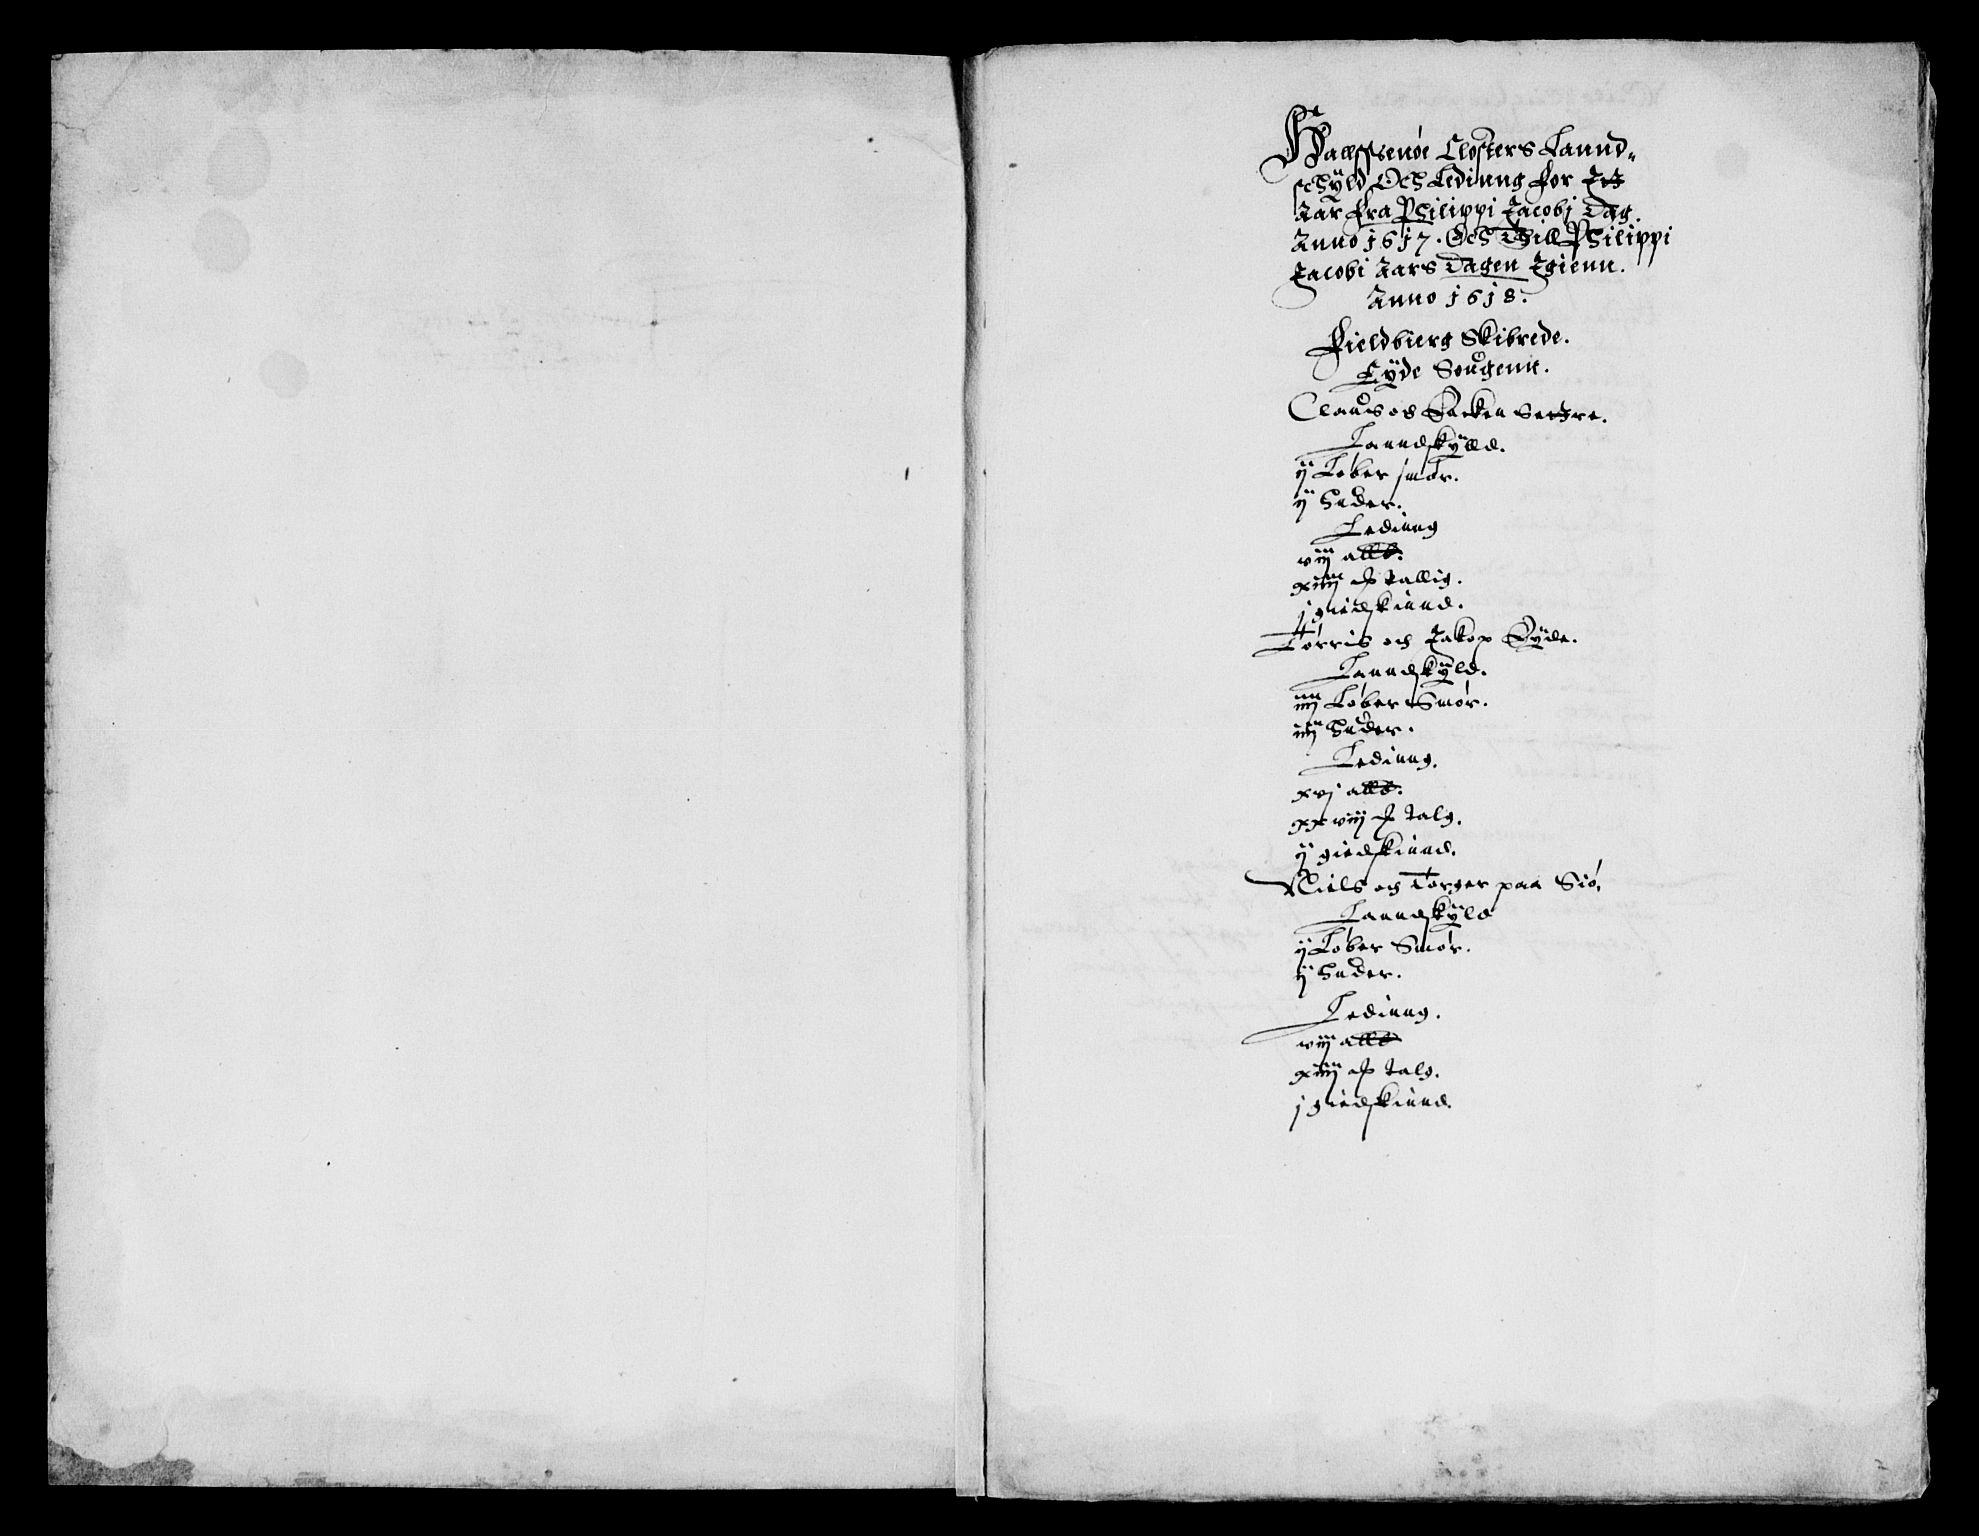 Halssenøe Closters Lannd„
schÿld Och Ledinng for Itt
Aar fra Philippi Jacobj Dag.
Anno 1617. Och Thill Philippi
Jacobi Aars Dagen Igienn.
Anno 1618.
Fieldbierg Skibrede.
Eÿde Sougenn.
Claus och Backen Settre.
Lanndskÿlld.
ij Løber smør.
ij huder.
Ledinng
viij alle.
xiiij ℔ tallig.
j giedskinnd.
Tørris och Jakop Eÿde.
Lanndskÿld.
iiij Løber Smør.
iiij huder.
Ledinng.
xvj alle.
xxviij ℔ talg.
ij giedskinnd.
Niels og Torger paa Siø.
Lanndskÿld
ij Løber Smør.
ij huder.
Ledinng.
viij alle
xiiij ℔ talg.
j giedskinnd.